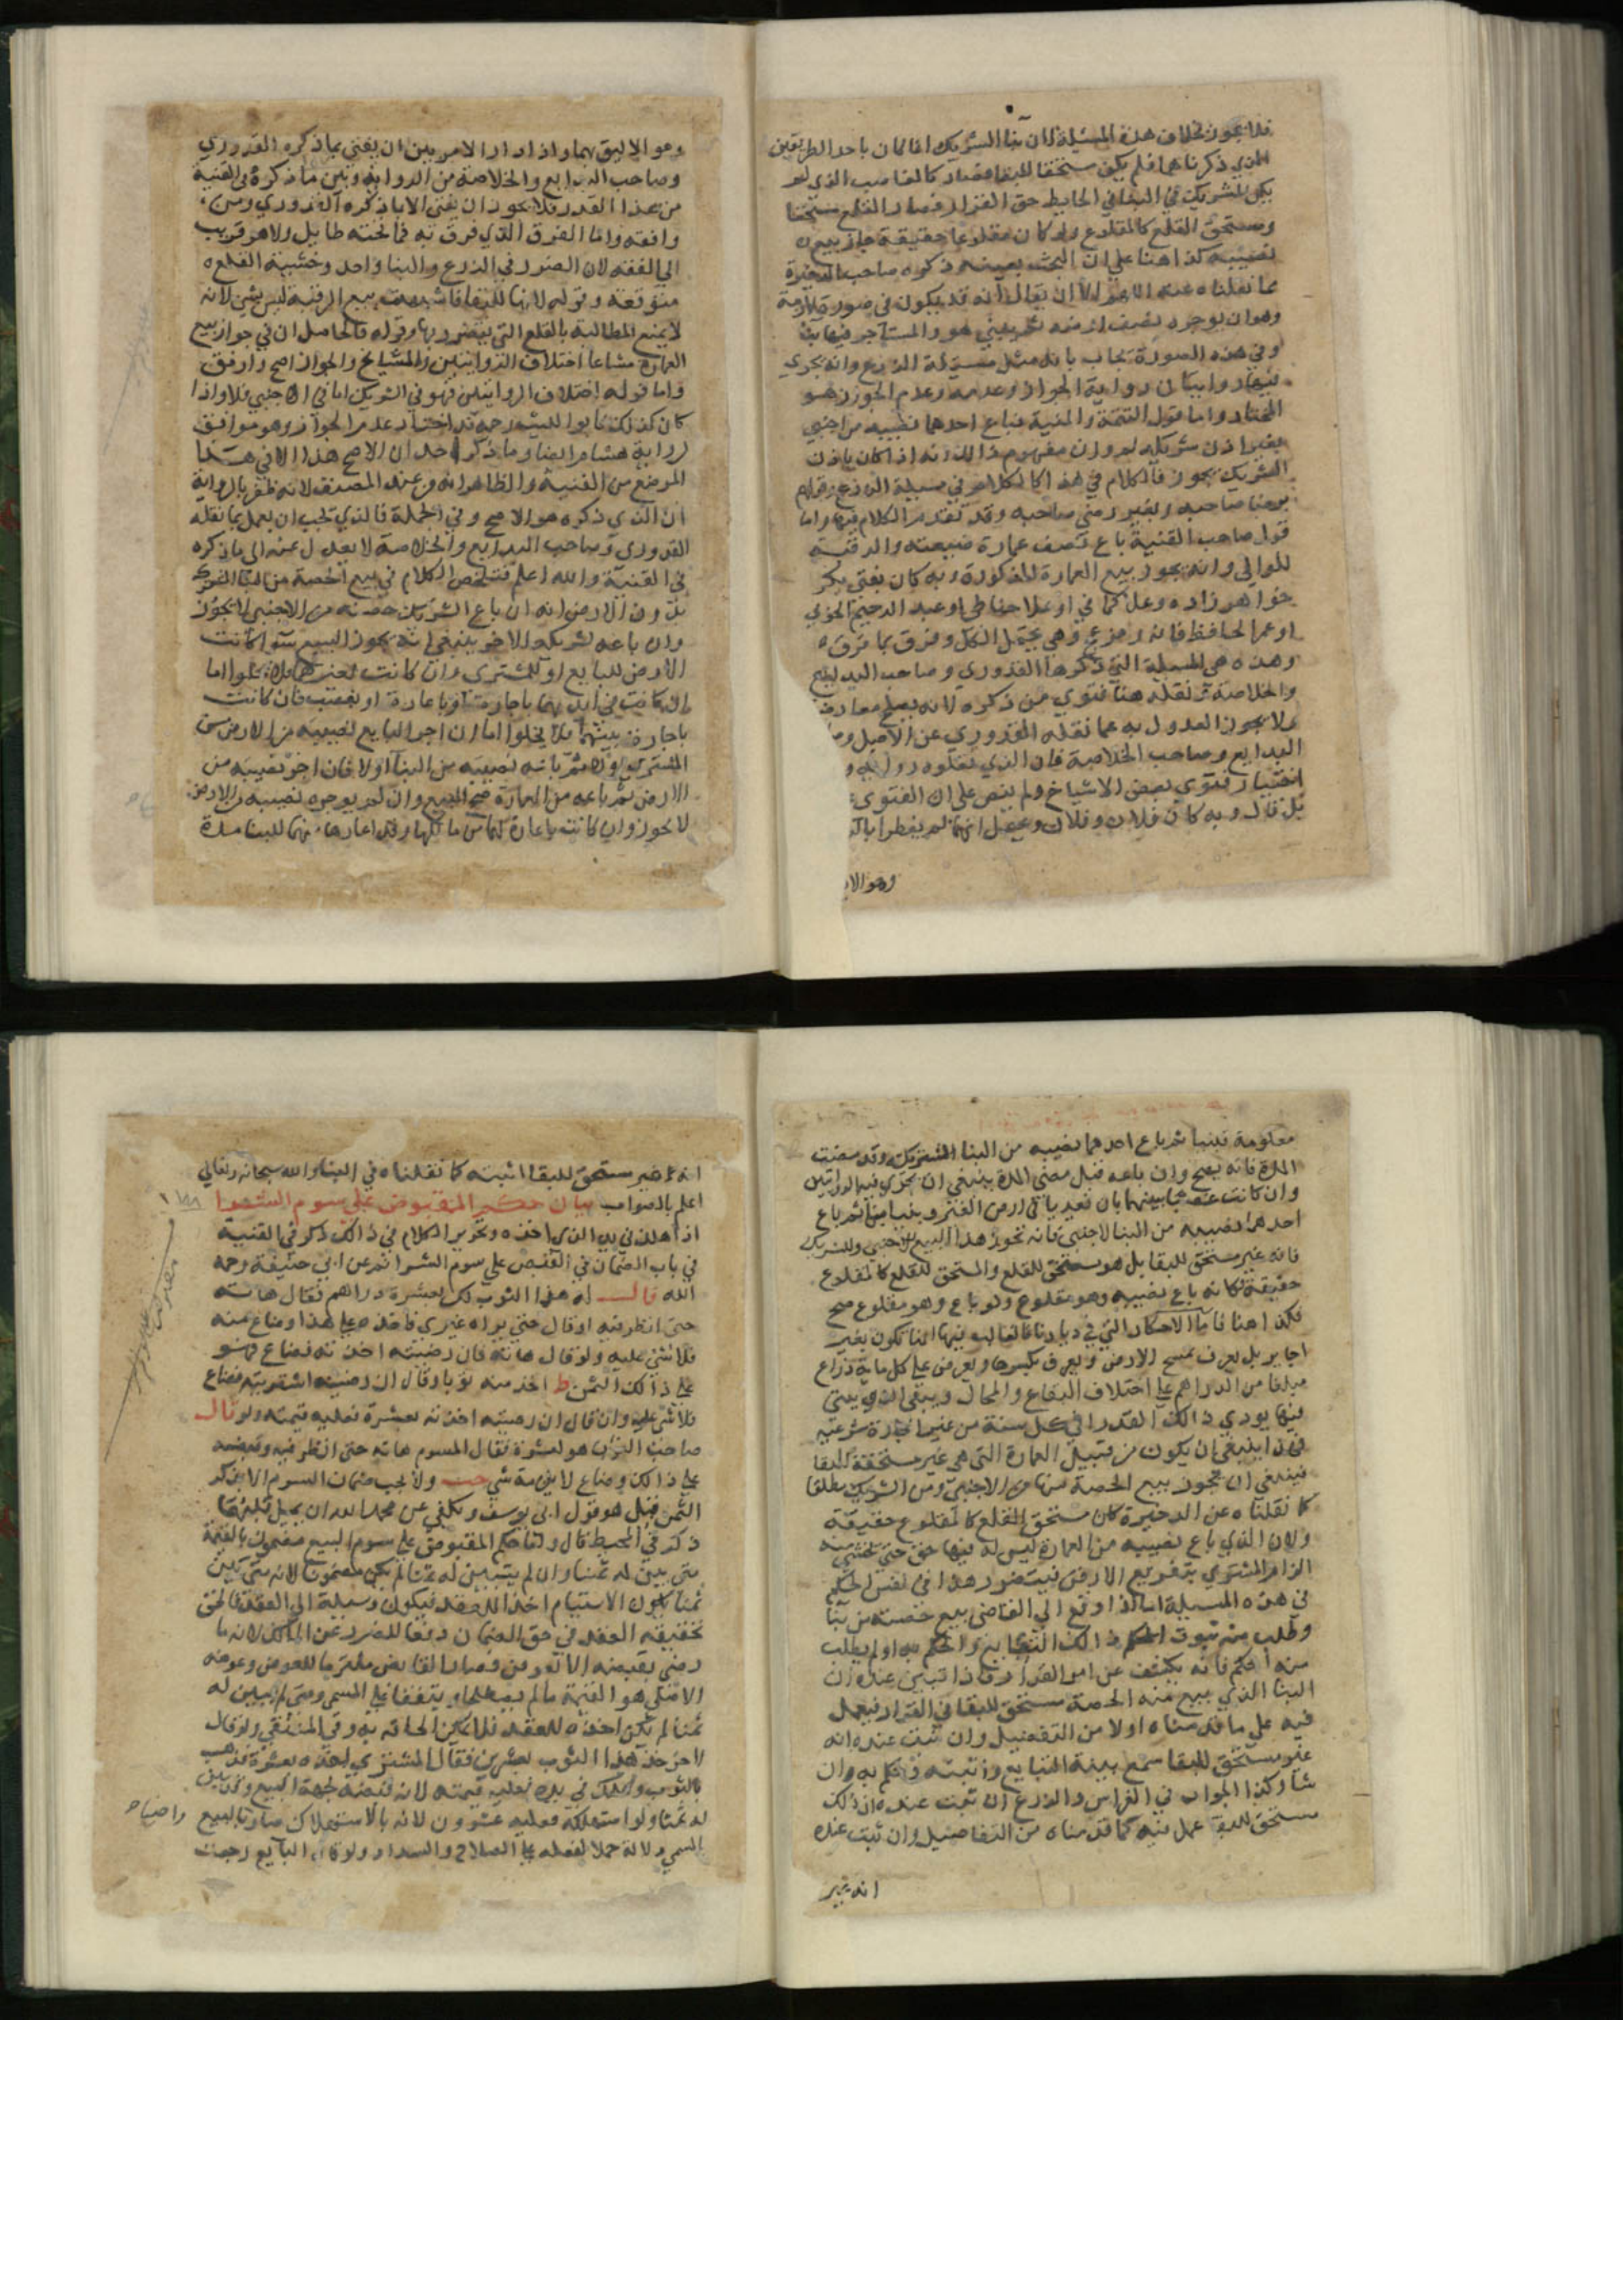 فلا يجوز بخلاف هذه المسيلة لان بنا الشريك انما كان باحد الطريقين
الذي ذكرناهما فلم يكن مستحقا للبقا فصار كالغاصب الذي لم
يكن للشريك في البنا في الحايط حق القرار فصار القلع مستحقا
ومستحق القلع كالمقلوع ولو كان مقلوعا حقيقة جاز بيع
نصيبه كذا هنا علي ان البحث بعينه ذكره صاحب الذخيرة
كما نقلناه عنه اللهم الا ان يقال انه قد يكون في صورة
وهو ان يوجر نصف ارضه ثم يبني هو والمستاجر فيها بنا
وفي هذه الصورة يجاب بانه مثل مسيلة الزرع وانه يجري
فيها روايتان رواية الجواز وعدمه وعدم الجواز هو
المختار واما قول التتمة والمنية فباع احدهما نصيبه من اجنبي
بغير اذن شريكه لم يجز ان مفهوم ذلك انه اذا كان باذن
الشريك يجوز فالكلام في هذا كالكلام في مسيلة الزرع وقولهم
برضا صاحبه وبغير رضي صاحبه وقد تقدم الكلام فيها واما
قول صاحب القنية باع نصف عمارة ضيعته والرقبة
للوالي وانه يجوز بيع العمارة المذكورة وبه كان يفتي بكر
خواهر زاده وعلا حماني او علا حناطي او عبد الرحيم
او عمر الحافظ فانه رمز ع وهي يحتمل الكل وفرق بما فرق
وهذه هي المسيلة التي ذكرها القدوري وصاحب البدايع
والخلاصة ثم نقله هنا فتوي من ذكره لانه يصلح معارضا
ولا يجوز العدول به عما نقله القدوري عن الاصل
البدايع وصاحب الخلاصة فان الذي نقلوه رواية و
اختيار فتوي بعض الاشياخ ولم ينص علي ان الفتوي
بل قال وبه كان فلان وفلان ويحتمل انهما لم يظفرا
وهو الا
وهو الاليق بهما واذا دار الامر بين ان يفتي بما ذكره القدوري
وصاحب البدايع والخلاصة من الرواية وبين ما ذكره في القنية
من هذا القدر فلا يجوز ان يفتي الا بما ذكره القدوري ومن
وافقه واما الفرق الذي فرق به فما تحته طايل ولا هو قريب
الي الفقه لان الضرر في الزرع والبنا واحد وخشية القلع
متوقعة وقوله لانها للبقا فاشبهت بيع الرقبة ليس بشي لانه
لا يمنع المطالبة بالقلع التي يتضرر بها وقوله فالحاصل ان في جواز بيع
العمارة مشاعا اختلاف الروايتين والمشايخ والجواز اصح وارفق
واما قوله اختلاف الروايتين فهو في الشريك اما في الاجنبي فلا واذا
كان كذلك فابو الليث رحمه الله اختار عدم الجواز وهو موافق
لرواية هشام ايضا وما ذكر احد ان الاصح هذا الا في هذا
الموضع من القنية والظاهر انه من عند المصنف لانه ظفر بالرواية
ان الذي ذكره هو الاصح وفي الجملة فالذي يجب ان يعمل بما نقله
القدوري وصاحب البدايع والخلاصة لا يعدل عنه الي ما ذكره
في القنية والله اعلم فتلخص الكلام في بيع الحصة من البنا المشترك
بدون الارض انه ان باع الشريك حصته من الاجنبي لا يجوز
وان باعه لشريكه الاخر ينبغي انه يجوز البيع سوا كانت
الارض للبايع او للمشتري وان كانت لغيرهما فلا يخلوا اما
ان كانت في ايديهما باجارة او باعارة او بغصب فان كانت
باجارة بينهما فلا يخلوا اما ان اجر البايع نصيبه من الارض من
المشتري اولا ثم باعه نصيبه من البنا او لا فان اجر نصيبه من
الارض ثم باعه من العمارة صح البيع وان لم يوجره نصيبه من الارض
لا يجوز وان كانت باعارة لهما من مالكها وقد اعارها منهما للبنا مدة
معلومة فبنيا ثم باع احدهما نصيبه من البنا المشترك وقد مضت
المدة فانه يصح وان باعه قبل مضي المدة ينبغي ان يجري فيه الروايتين
وان كانت غصبا بينهما بان تعديا في ارض الغير وبنيا فيها ثم باع
احدهما نصيبه من البنا لاجنبي فانه يجوز هذا البيع للاجنبي وللشريك
فانه غير مستحق للبقا بل هو مستحق للقلع والمستحق للقلع كالمقلوع
حقيقة فكانه باع نصيبه وهو مقلوع ولو باع وهو مقلوع صح
فكذا هنا فاما الاحكار التي في ديارنا فالغالب فيها انها تكون بغير
اجاير بل يعرف بمسح الارض ويعرف تكسيرها ويفرض علي كل ماية ذراع
مبلغا من الدراهم علي اختلاف البقاع والمحال ويبقي الذي يبني
فيها يودي ذلك القدر في كل سنة من غير اجارة شرعية
فهذا ينبغي ان يكون من قبيل العمارة التي هي غير مستحقة للبقا
فينبغي ان يجوز بيع الحصة منها من الاجنبي ومن الشريك مطلقا
كما نقلناه عن الذخيرة لان مستحق القلع كالمقلوع حقيقة
ولان الذي باع نصيبه من العمارة ليس له فيها حق حتي يخشي منه
الزام المشتري بتفريغ الارض فيتضرر هذا في نفس الحكم
في هذه المسيلة اما اذا وقع الي القاضي بيع حصته من بنا
وطلب منه ثبوت الحكم ذلك التبايع والحكم به او لم يطلب
منه الحكم فانه يكشف عن امر القرار فاذا تبين عنده ان
البنا الذي بيع منه الحصة مستحق للبقا في القرار فيعمل
فيه علي ما قدمناه اولا من التفصيل وان ثبت عنده انه
غير مستحق للبقا سمع بينة التبايع وتثبته وحكم به وان
شا وكذا الجواب في الغراس والزرع ان ثبت عنده ان ذلك
مستحق للبقا عمل فيه كما قدمناه من التفاصيل وان ثبت عنده
انه غير
انه غير مستحق للبقا اثبته كما نقلناه في البنا والله سبحانه وتعالي
اعلم بالصواب بيان حكم المقبوض علي سوم الشرا
اذا هلك في يد الذي اخذه وتحرير الكلام في ذلك ذكر في القنية
في باب الضمان في القبض علي سوم الشرا ثم عن ابي حنيفة رحمه
الله قال له هذا الثوب لك بعشرة دراهم فقال هاته
حتي انظر فيه او قال حتي يراه غيري فاخذه علي هذا وضاع منه
فلا شي عليه ولو قال هاته فان رضيته اخذته فضاع فهو
علي ذلك الثمن ط اخذ منه ثوبا وقال ان رضيته اشتريته فضاع
فلا شي عليه وان قال ان رضيته اخذته بعشرة فعليه قيمته ولو قال
صاحب الثوب هو بعشرة فقال المساوم هاته حتي انظر فيه وقبضه
علي ذلك وضاع لا يلزمه شي ولا يجب ضمان السوم الا بذكر
الثمن قيل هو قول ابي يوسف ويكفي عن محمد
ذكر في المحيط قال واما حكم المقبوض علي سوم البيع مضمون بالقيمة
متي بين له ثمنا وان لم يتبين له ثمنا لم يكن مضمونا لانه متي بين
ثمنا يكون الاستيام اخذا للعقد فيكون وسيلة الي العقد فالحق
بحقيقة العقد في حق الضمان دفعا للضرر عن المالك لانه ما
رضي بقبضه الا بعوض فصار القابض ملتزما للعوض وعوضه
الاصلي هو القيمة ما لم يصطلحا ويتفقا علي المسمي ومتي لم يبين له
ثمنا لم يكن اخذه للعقد فلا يمكن الحاقه به وفي المنتقي ولو قال
لاخر خذ هذا الثوب بعشرين فقال المشتري اخذه بعشرة فذهب
بالثوب وهلك في يده فعليه قيمته لانه قبضه لجهة البيع وقد بين
له ثمنا ولو استهلكه فعليه عشرون لانه بالاستهلاك صار البيع
المسمي دلالة حملا لفعله علي الصلاح والسداد ولو قال البايع رجعت